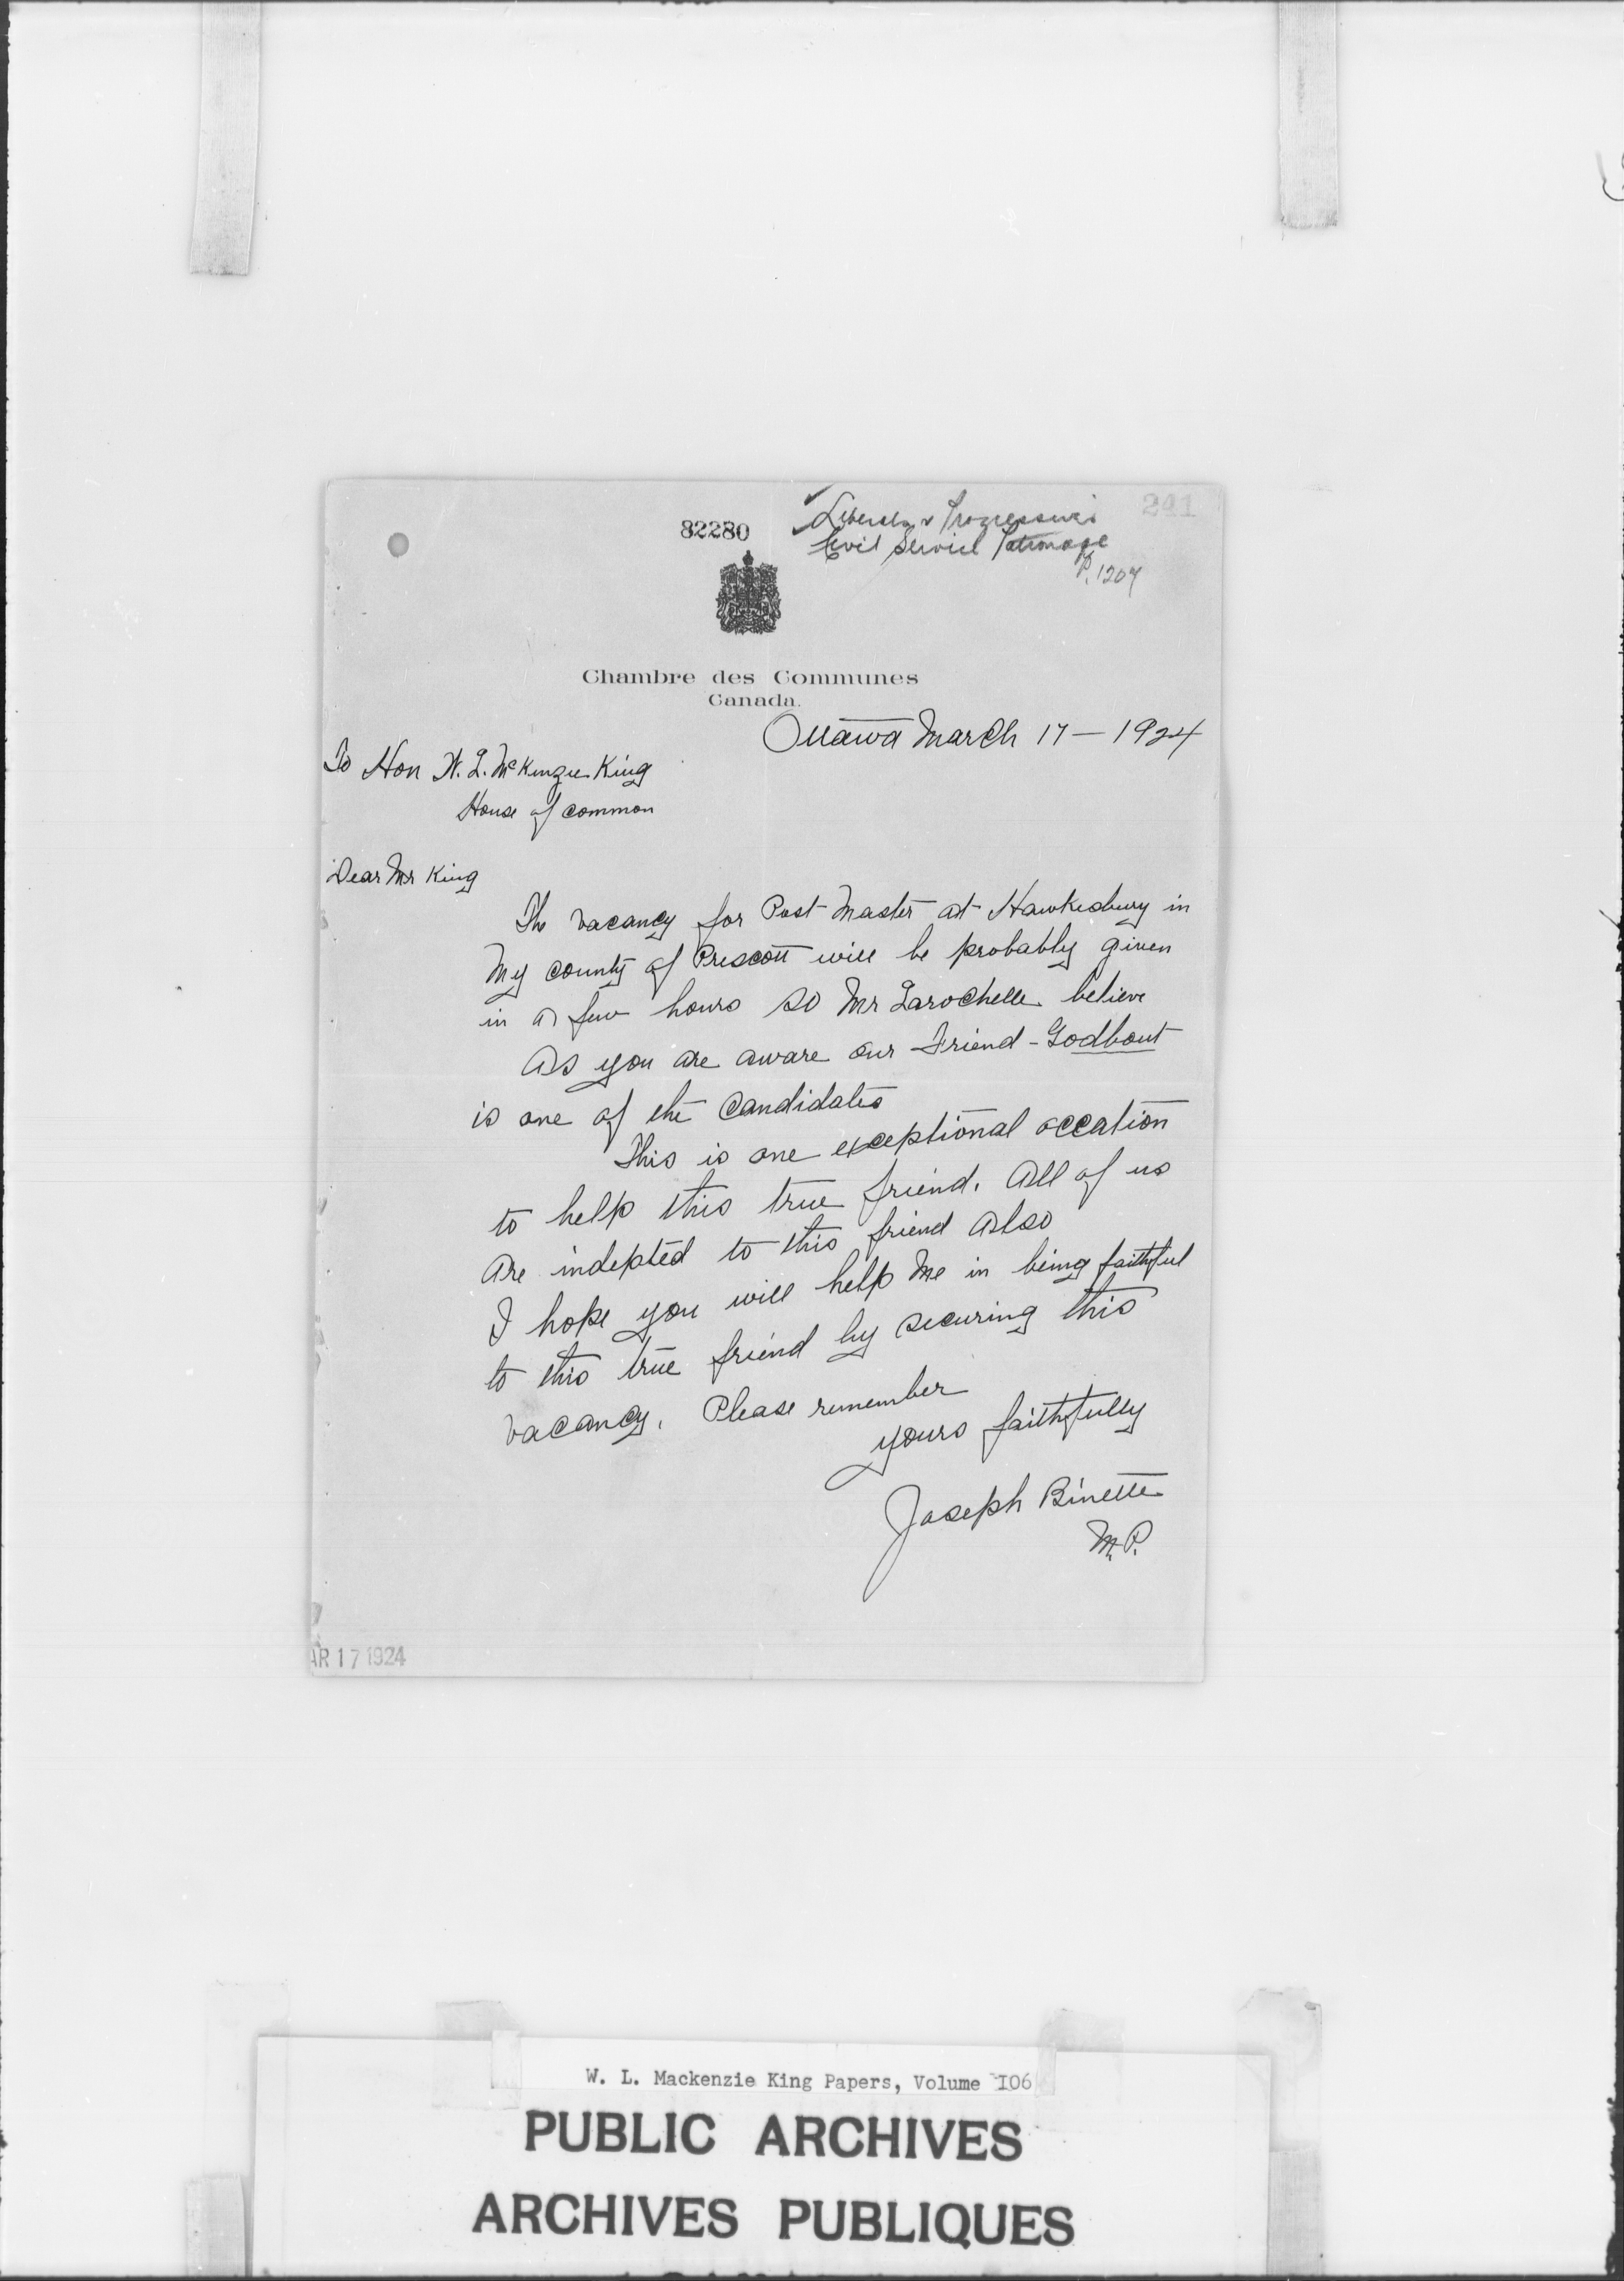 241
82280
Liberals & Progressives
Civil Service Patronage
P. 1207
Chambre des Communes
Canada.
Ottawa March 17 - 1924
To Hon W. L. McKenzie King
House of common
Dear Mr King
The vacancy for Post Master at Hawkesbury in
My county of Prescott will be probably given
in a few hours so Mr Larochelle believe
As you are aware our Friend - Godbout
is one of the Candidates
This is one exceptional occation
to help this true friend. All of us
are indepted to this friend also
I hope you will help me in being faithful
to this true friend by securing this
vacancy. Please remember
yours faithfully
Joseph Binette
M.P.
AR 17 1924
W. L. Mackenzie King Papers, Volume 106
PUBLIC ARCHIVES
ARCHIVES PUBLIQUES